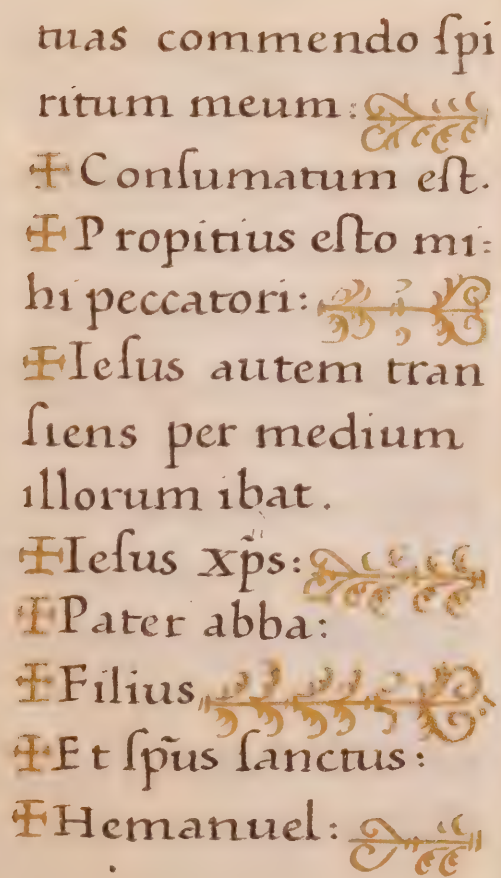 tuas commendo ſpi
ritum meum:
✠ Conſumatum eſt.
✠ Propitius eſto mi:
hi peccatori:
✠ Ieſus autem tran
ſiens per medium
ıllorum ibat.
✠ Ieſus xp̃s:
✠ Pater abba:
✠ Filius,
✠ Et ſpũs ſanctus:
✠ Hemanuel: